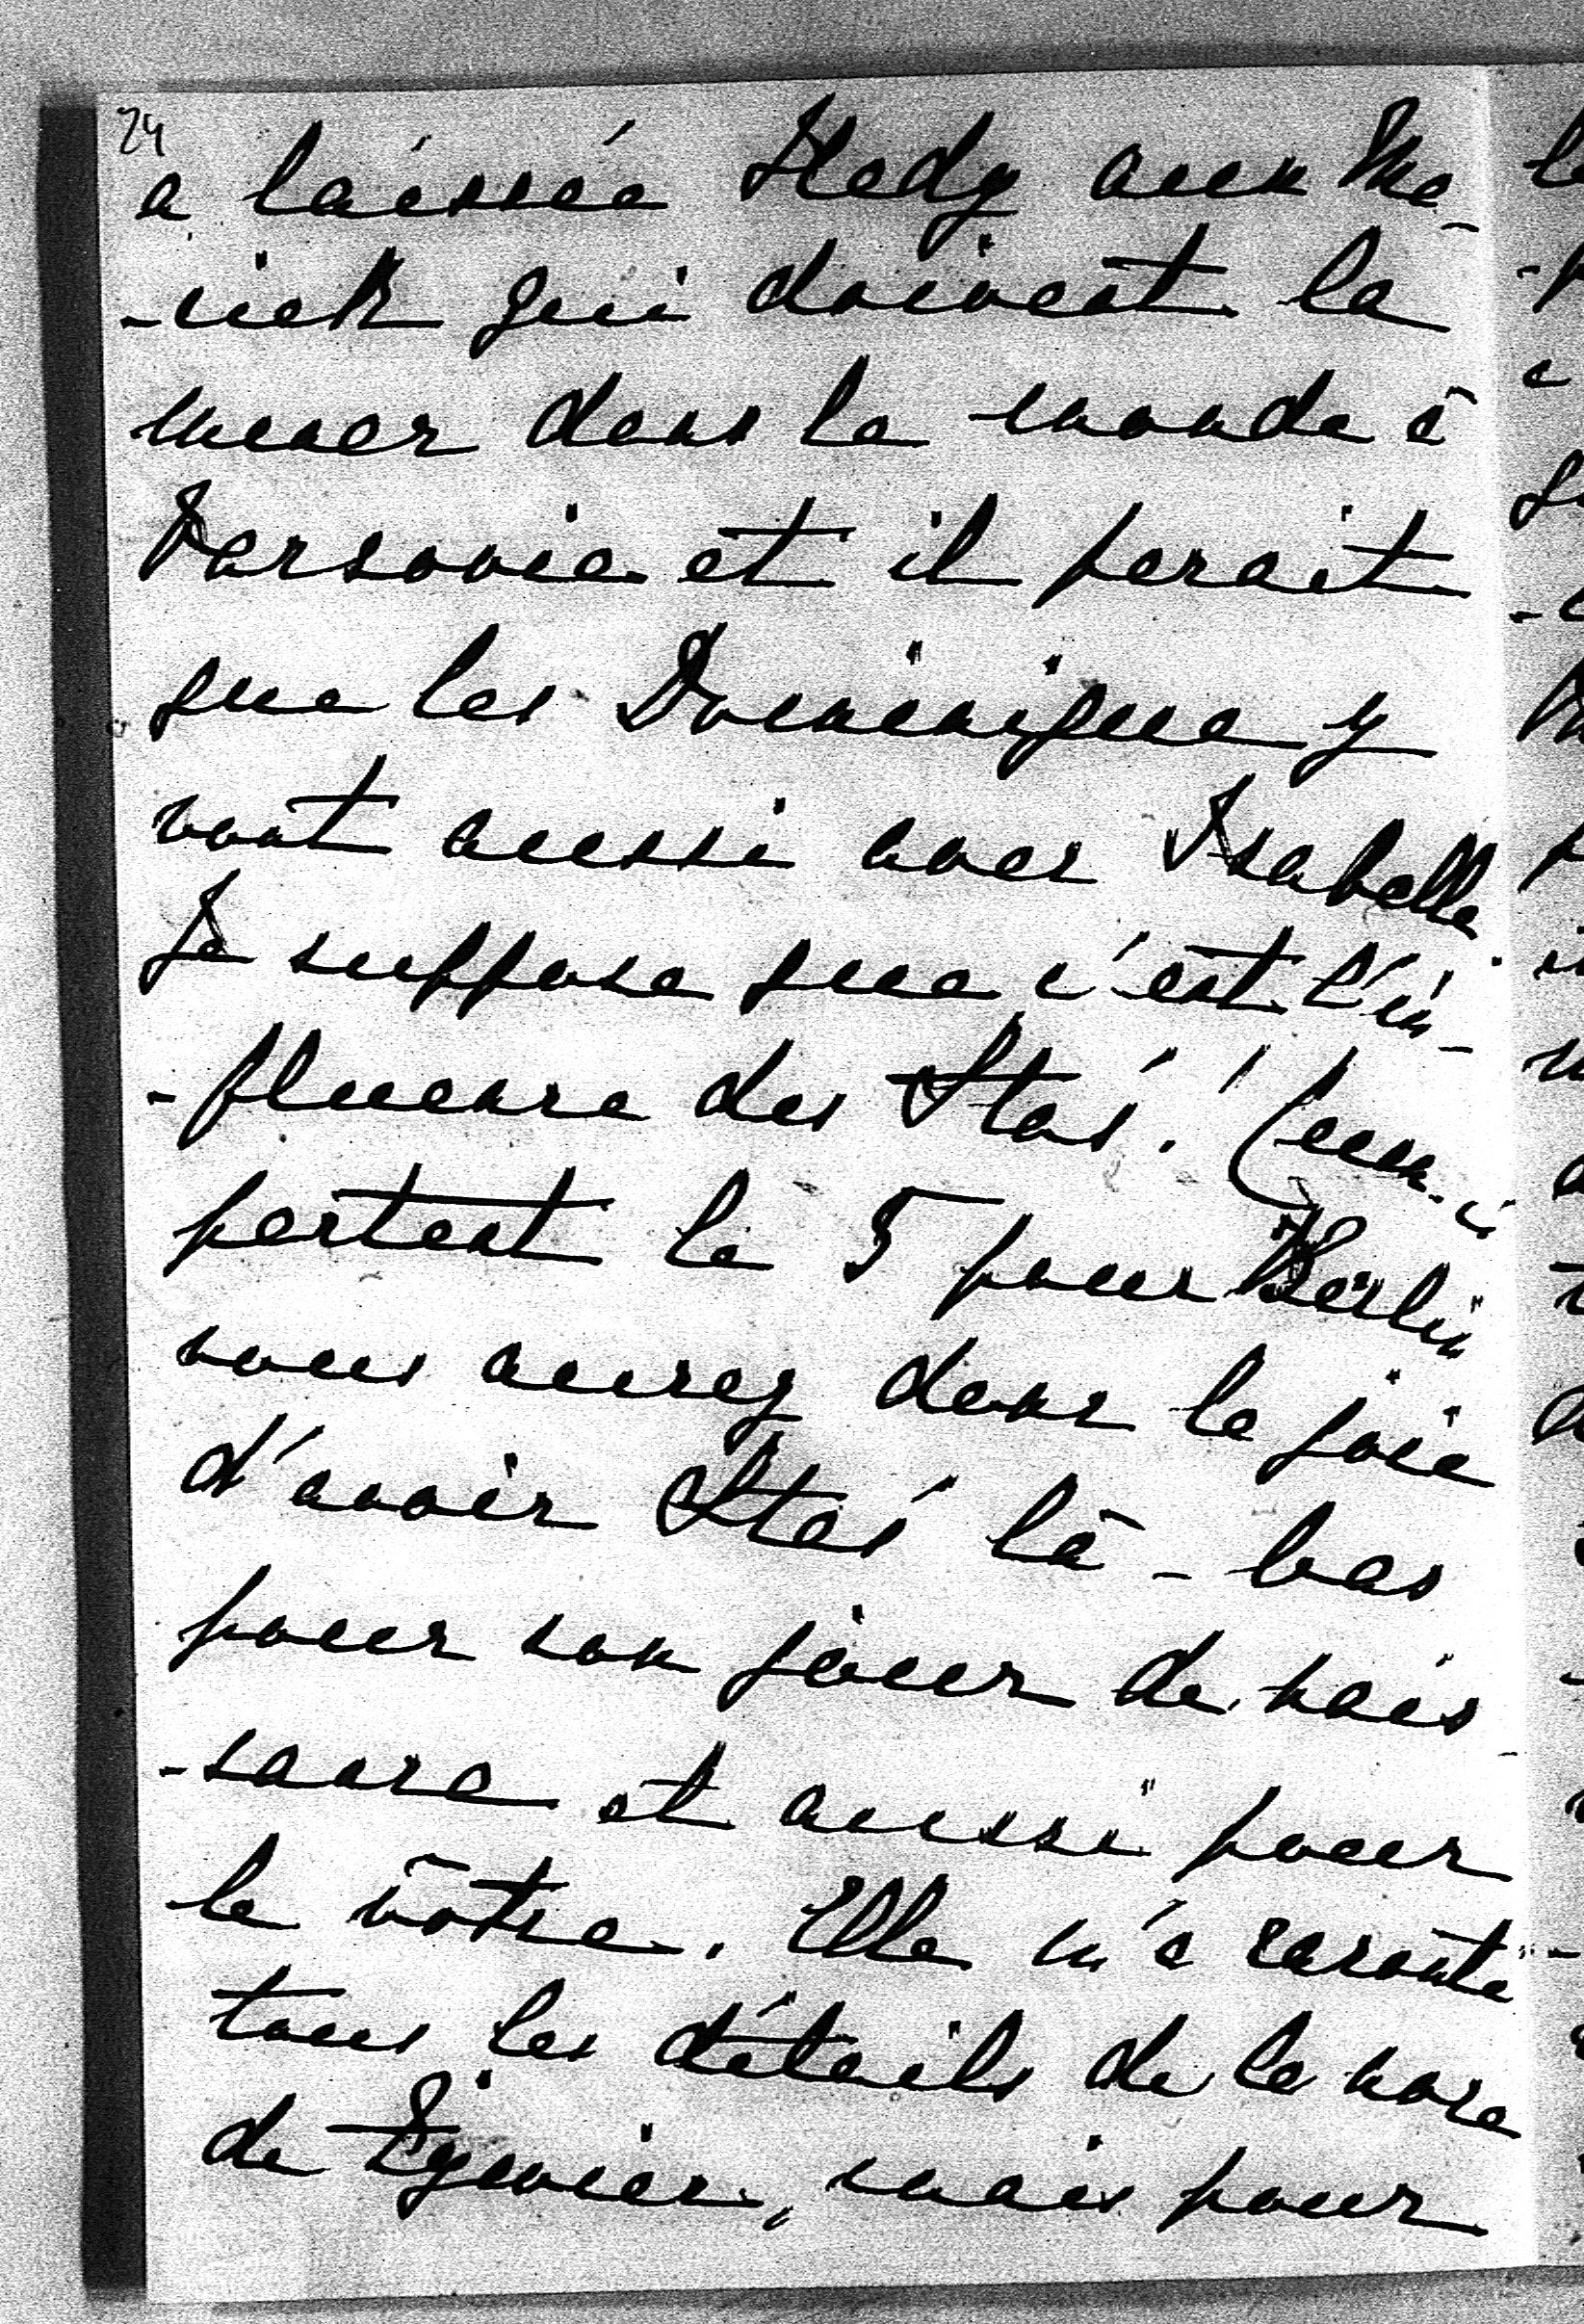 24
a laissée Hedy aux Ma-
-ciek qui doivent la
mener dans le monde à
Varsovie et il parait
que les Dominique y
vont aussi avec Isabelle
Je suppose que c'est l'in-
-fluence des Staś! Ceux-ci
partent le 5 pour Berlin
vous aurez donc la joie
d'avoir Staś là-bas
pour son jour de nais-
-sance et aussi pour
le vôtre. Elle m'a raconté
tous les détails de la noce
de Zgwier, mais pour